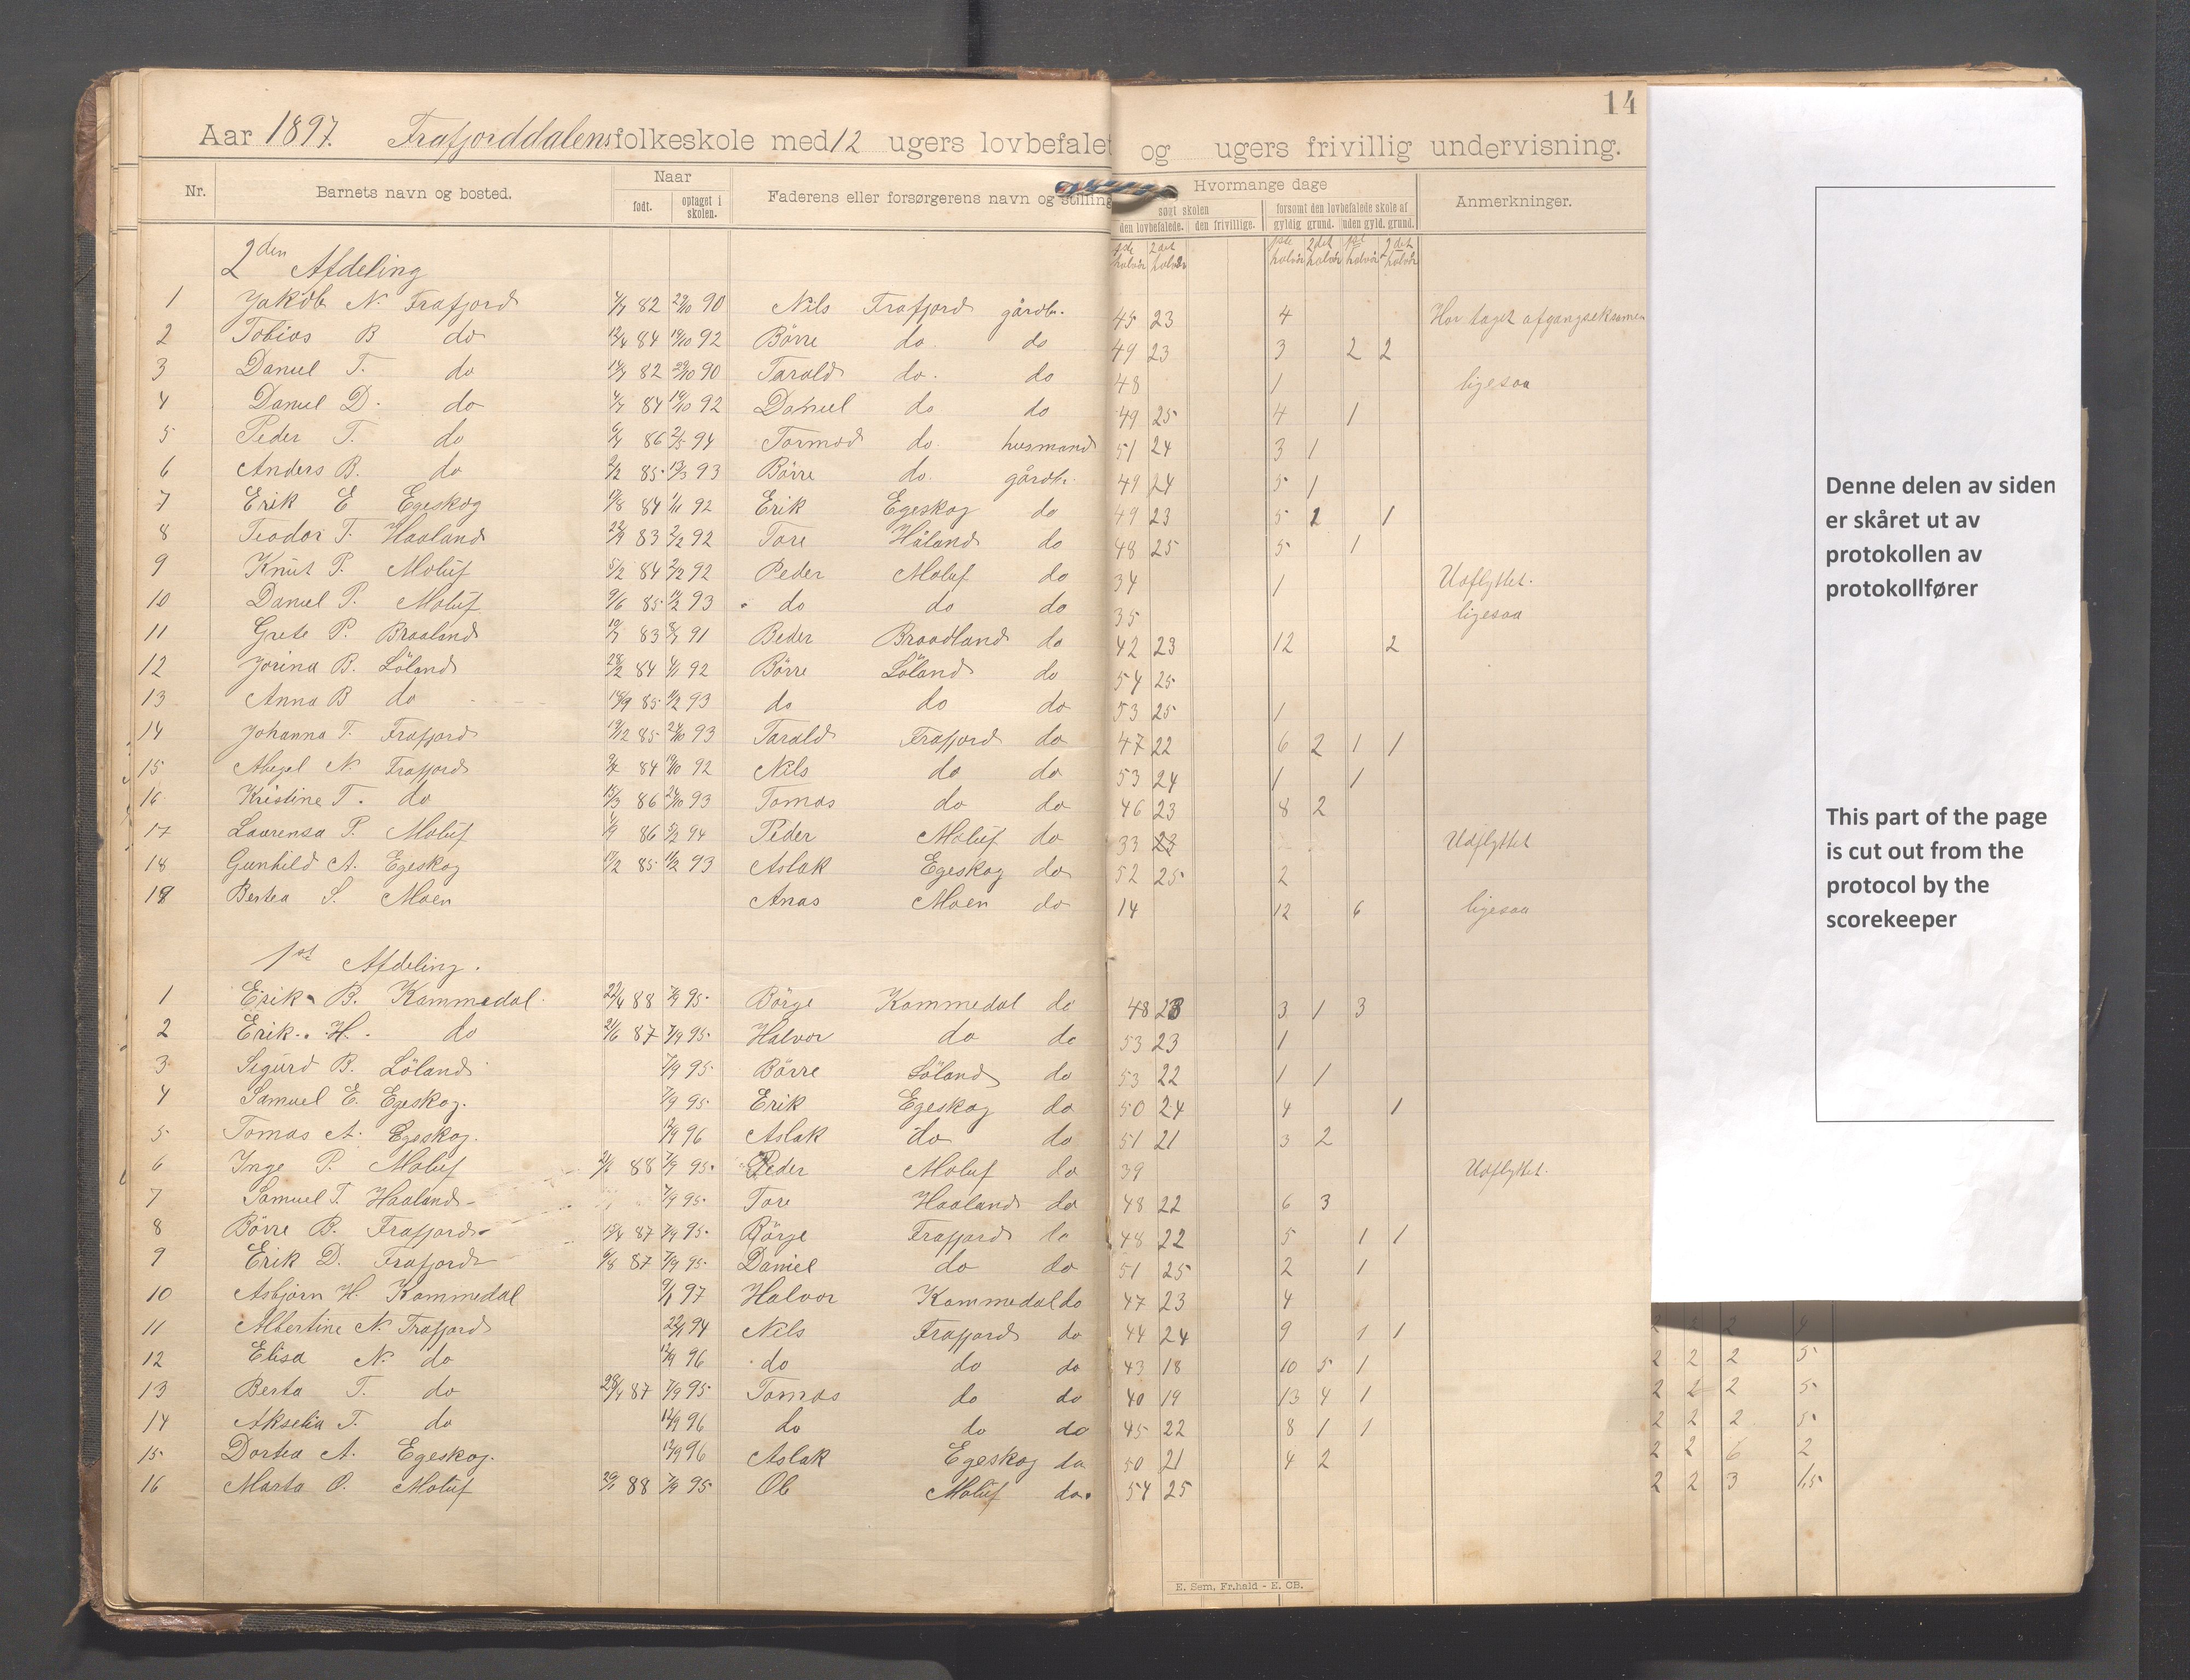 14
Aar 1897. Frafjorddalens folkeskole med 12 ugers lovbefalet og ugers frivillig undervisning.
Nr. Barnets navn og bosted. Naar født. optaget i skolen. Faderens eller forsørgerens navn og stilling Hvormange dage søgt skolen den lovbefalede. den frivillige. forsømt den lovbefalede skole af gyldig grund. uden gyld. grund. Anmerkninger.
1ste halvår 2det halvår 1ste halvår 2det halvår 1ste halvår 2det halvår
2den Afdeling
1 Jakob N. Frafjord 82 29/10 90 Nils Frafjord gårdbr. 45 23 4 Har taget afgangseksamen
2 Tobias B do 12/4 84 19/10 92 Börre do. do 49 23 3 2 2
3 Daniel T. do 82 29/10 90 Tarald do. do 48 1 ligesaa
4 Daniel D. do 84 19/10 92 Daniel do do 49 25 4 1
5 Peder T. do 86 2/5 94 Tormod do. husmand 51 24 3 1
6 Anders B. do 85 13/3 93 Börre do. gårdbr. 49 24 5 1
7 Erik E Egeskog 84 1/11 92 Erik Egeskog do 49 23 5 2 1
8 Teodor T. Haaland 83 2/2 92 Tore Håland do 48 25 5 1
9 Knut P. Moluf 5/2 84 2/2 92 Peder Moluf do 34 1 Udflyttet.
10 Daniel P. Moluf 9/6 85 93 do do do 35 ligesaa
11 Grete P. Braaland 83 91 Beder Braadland do 42 23 12 2
12 Jorina B. Löland 28/2 84 92 Börre Löland do 54 25
13 Anna B do 85 93 do do do 53 25 1
14 Johanna T. Frafjord 19/12 85 24/10 93 Tarald Frafjord do 47 22 6 2 1 1
15 Abegel N. Frafjord 84 19/10 92 Nils do do 53 24 1 1
16 Kristine T. do 15/3 86 24/10 93 Tomas do do 46 23 8 2
17 Laurensa P. Moluf 86 5/2 94 Peder Moluf do 33 23 Udflyttet
18 Gunhild A. Egeskog 85 93 Aslak Egeskog do 52 25 2
19 Bertea S. Moen Anas Moen do 14 12 6 ligesaa
1st Afdeling.
1 Erik B. Kommedal 22/4 88 7/9 95 Börge Kommedal do 48 23 3 1 3
2 Erik H. do 21/6 87 7/9 95 Halvor do do 53 23 1
3 Sigurd B. Löland 7/9 95 Börre Löland do 53 22 1 1
4 Samuel E. Egeskog. 7/9 95 Erik Egeskog do 50 24 4 1
5 Tomas A. Egeskog. 12/9 96 Aslak do do 51 21 3 2
6 Inge P. Moluf 88 7/9 95 Peder Moluf do 39 Udflyttet.
7 Samuel T. Haaland 7/9 95 Tore Haaland do 48 22 6 3
8 Börre B. Frafjord 15/4 87 7/9 95 Börge Frafjord do 48 22 5 1 1
9 Erik D. Frafjord 6/8 87 7/9 95 Daniel do do 51 25 2 1
10 Asbjørn H. Kommedal 97 Halvor Kommedal do 47 23 4
11 Albertine N. Frafjord 94 Nils Frafjord do 44 24 9 1 1
12 Elisa N. do 12/9 96 do do do 43 18 10 5 1
13 Berta T. do 28/4 87 7/9 95 Tomas do do 40 19 13 4 1
14 Akselia T. do 12/9 96 do do do 45 22 8 1 1
15 Dortea A. Egeskog. 12/9 96 Aslak Egeskog do 50 21 4 2
16 Marta O. Moluf 88 7/9 95 Ole Moluf do. 54 25
E. Sem, Fr.hald - E. CB.
Denne delen av siden
er skåret ut av
protokollen av
protokollfører
This part of the page
is cut out from the
protocol by the
scorekeeper
2 2 2 5
2 2 2 5
2 2 2 5
2 2 6 2
2 2 3 1,5